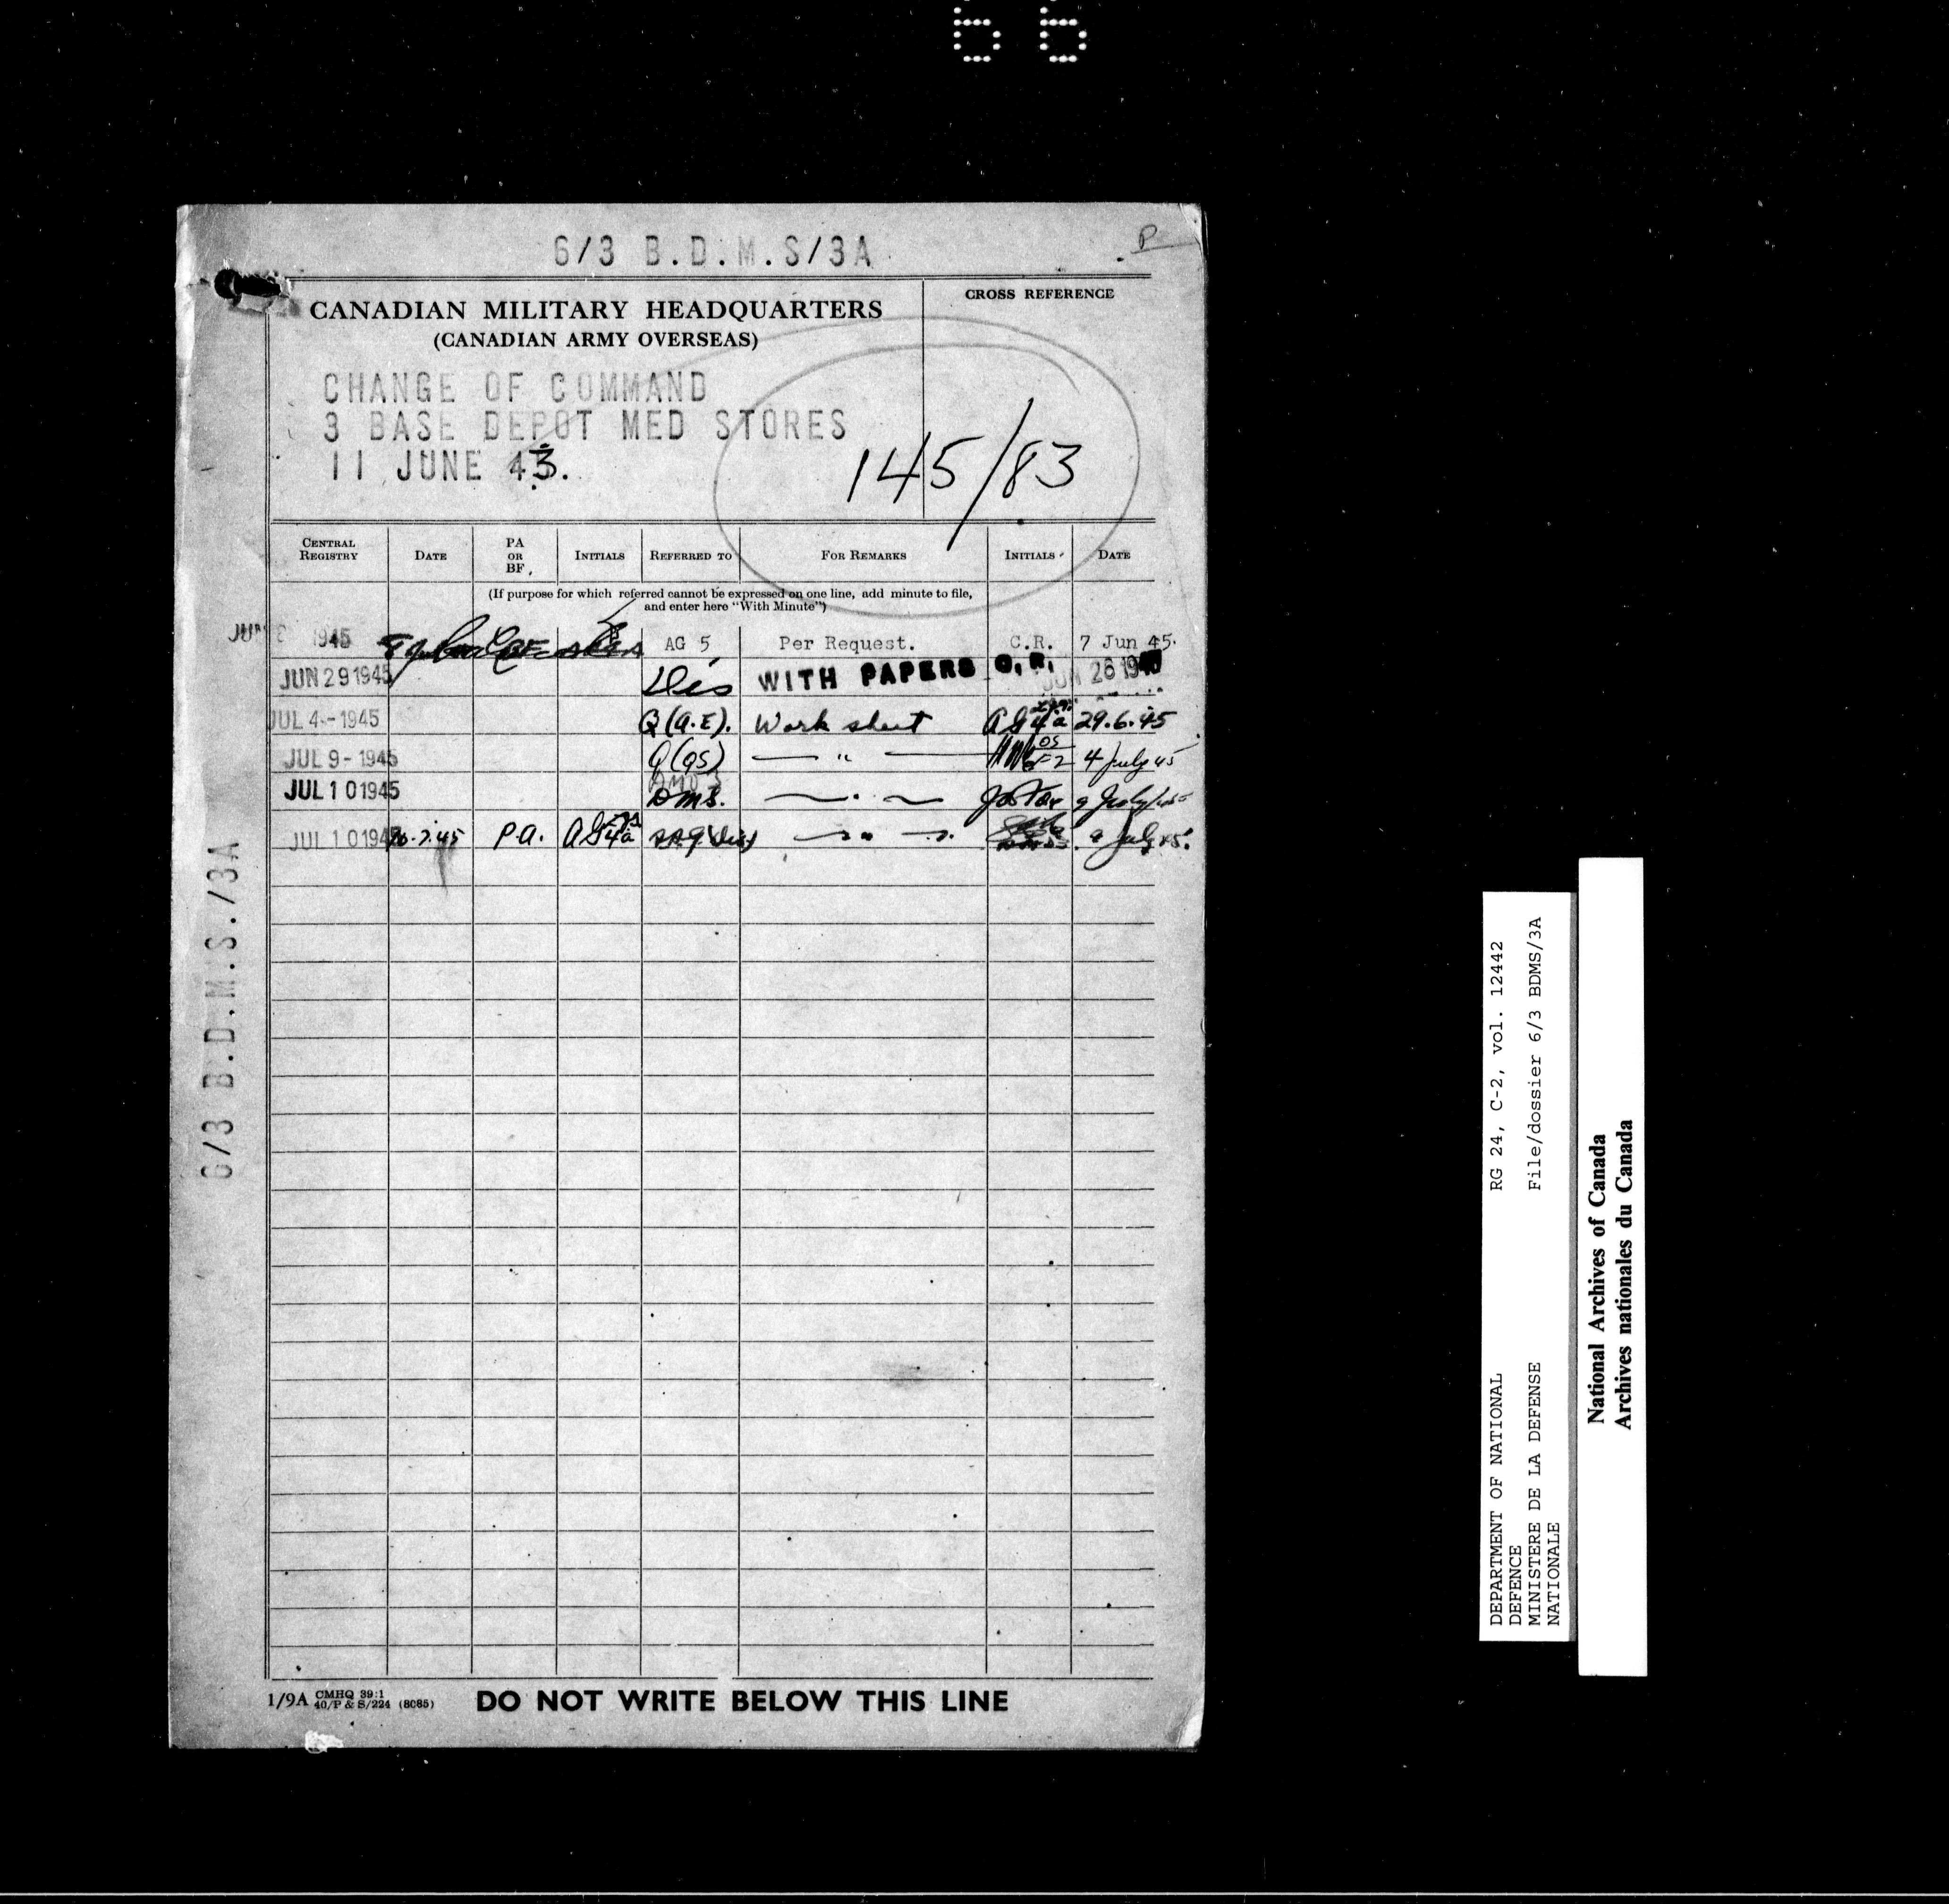 6/3 B.D.M.S/3A
P
CANADIAN MILITARY HEADQUARTERS
(CANADIAN ARMY OVERSEAS)
CROSS REFERENCE
CHANGE OF COMMAND
3 BASE DEPOT MED STORES
11 JUNE 43.
145/83
CENTRAL REGISTRY DATE PA OR BF. INITIALS REFERRED TO FOR REMARKS INITIALS DATE
(If purpose for which referred cannot be expressed on one line, add minute to file,
and enter here "With Minute")
JUN 1945 AG 5 Per Request. C.R. 7 Jun 45.
JUN 29 1945 WITH PAPERS C.R. JUN 26 19
JUL 4-1945 Q (A.E). Work sheet AG4a 29.6.45
JUL 9-1945 Q(OS) — " — 4 July 45
JUL 10 1945 DMS. 9 July/45
JUL 10 194 10.7.45 P.A. AG4a 9 July 45.
6/3 B.D.M.S./3A
1/9A CMHQ 39:1
40/P & S/224 (8085)
DO NOT WRITE BELOW THIS LINE
DEPARTMENT OF NATIONAL DEFENCE RG 24, C-2, vol. 12442
MINISTERE DE LA DEFENSE NATIONALE File/dossier 6/3 BDMS/3A
National Archives of Canada
Archives nationales du Canada